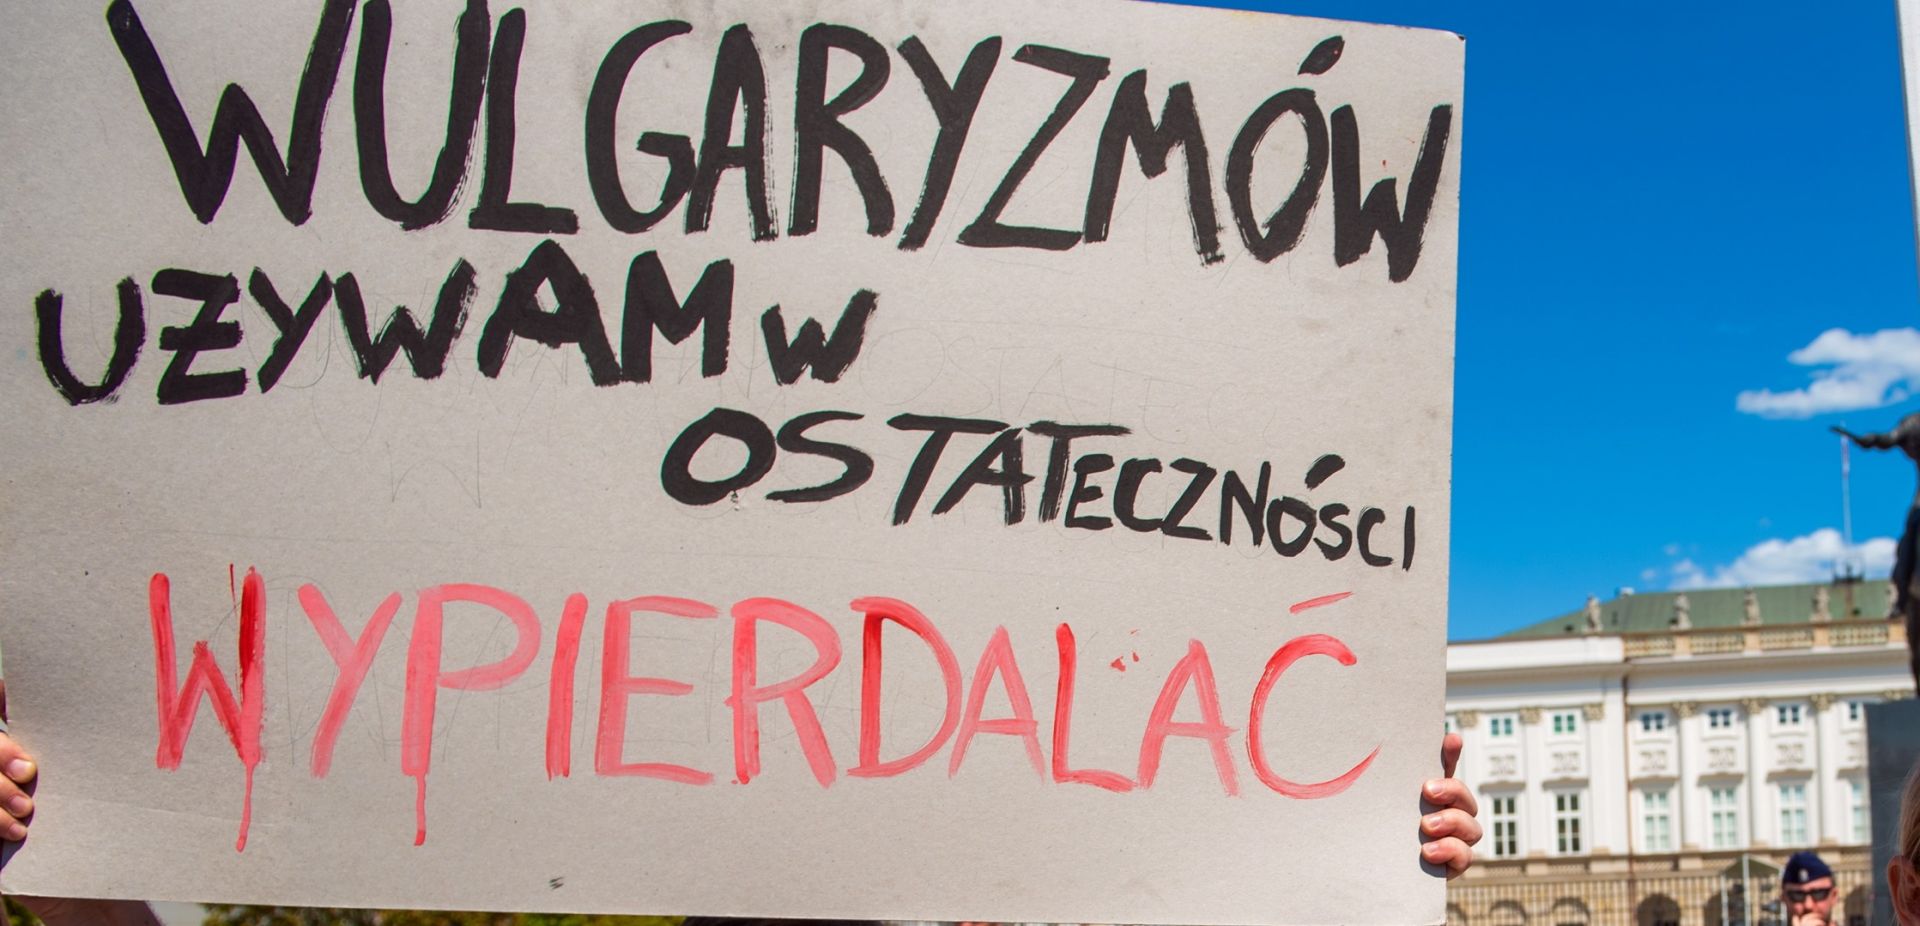 WULGARYZMÓW
UŻYWAM W
OSTATECZNOŚCI
WYPIERDALAĆ